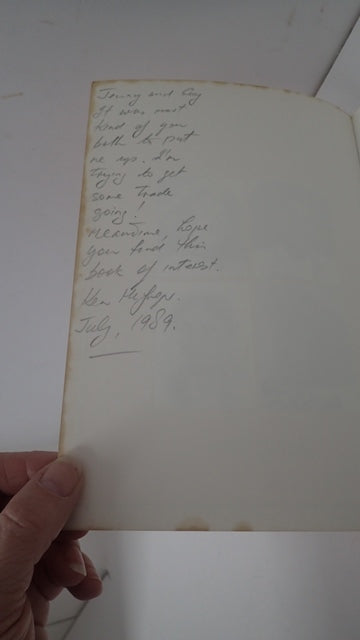 Jenny and Guy
It was most
kind of you
both to put
me up. I'm
trying to get
some trade
going!
Meantime, hope
you find this
book of interest.
Ken
July, 1989.